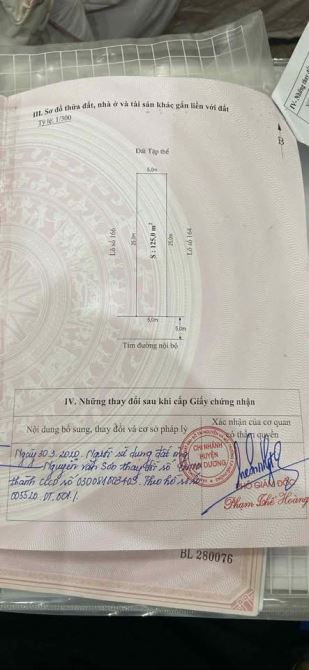 III. Sơ đồ thửa đất, nhà ở và tài sản khác gắn liền với đất
Tỷ lệ: 1/300
B
Đất Tập thể
5,0m
Lô số 166
25,0m
S : 125,0 m²
25,0m
Lô số 164
5,0m
5,0m
Tim đường nội bộ
IV. Những thay đổi sau khi cấp Giấy chứng nhận
Nội dung bổ sung, thay đổi và cơ sở pháp lý
Xác nhận của cơ quan
có thẩm quyền
Ngày 30.3.2020. Người sử dụng đất
Nguyễn Văn thay đổi số
thành CCCD số Theo hồ sơ số
005520.
CHI NHÁNH
HUYỆN
DƯƠNG
PHÓ GIÁM ĐỐC
Phạm Thế Hoàng
BL 280076
IV. Những